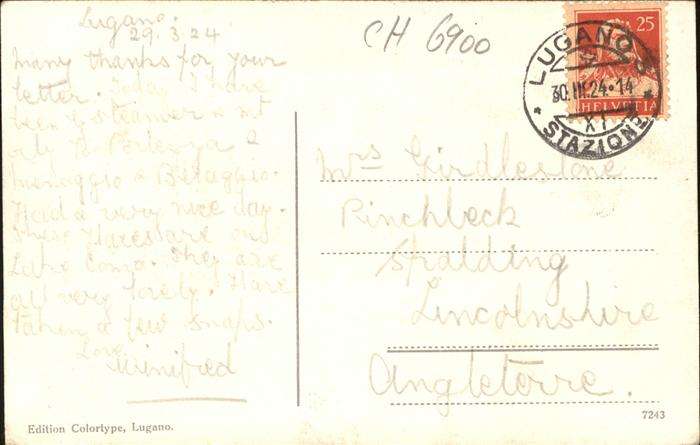 Lugano.
29.3.24
Many thanks for your
letter. Today I have
been by steamer &
to Porlezza &
Menaggio & Bellaggio.
Had a very nice day.
These places are on
Lake Como. They are
all very lovely. Have
taken a few snaps.
Love
Winifred
CH 6900
25
HELVETIA
LUGANO
30.III.24·14
XI
STAZIONE
Mrs Girdlestone
Pinchbeck
Spalding
Lincolnshire
Angleterre.
Edition Colortype, Lugano.
7243